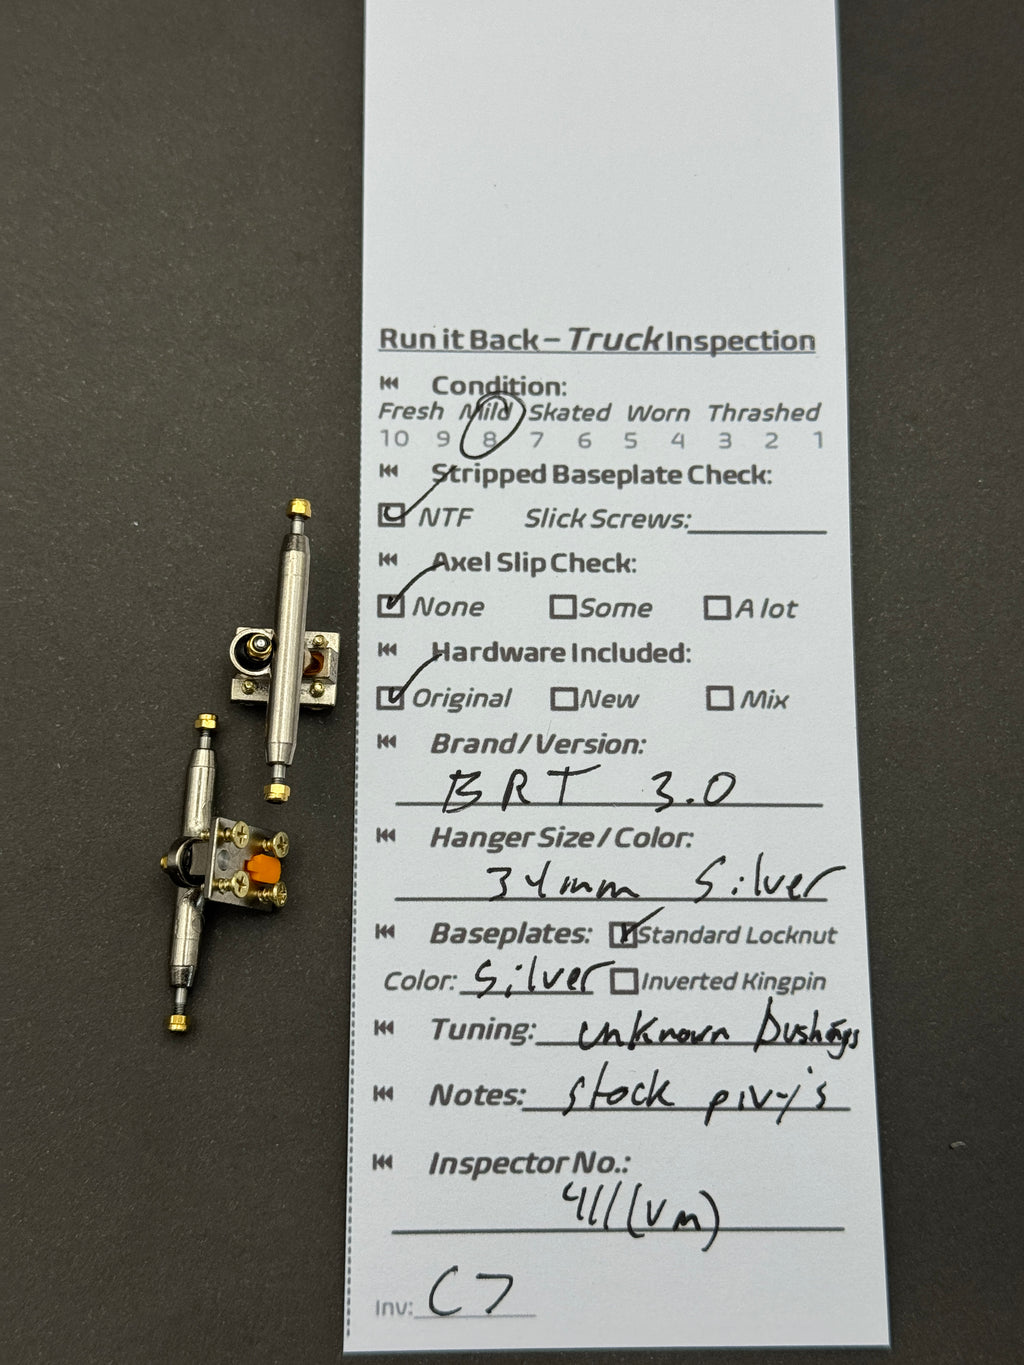 Run it Back – Truck Inspection
Condition:
Fresh Mild Skated Worn Thrashed
10 9 8 7 6 5 4 3 2 1
Stripped Baseplate Check:
NTF Slick Screws:
Axel Slip Check:
None Some A lot
Hardware Included:
Original New Mix
Brand/Version:
BRT 3.0
Hanger Size/Color:
34mm Silver
Baseplates: Standard Locknut
Color: Silver Inverted Kingpin
Tuning: unknown bushings
Notes: stock
Inspector No.:
411(vm)
Inv: C7